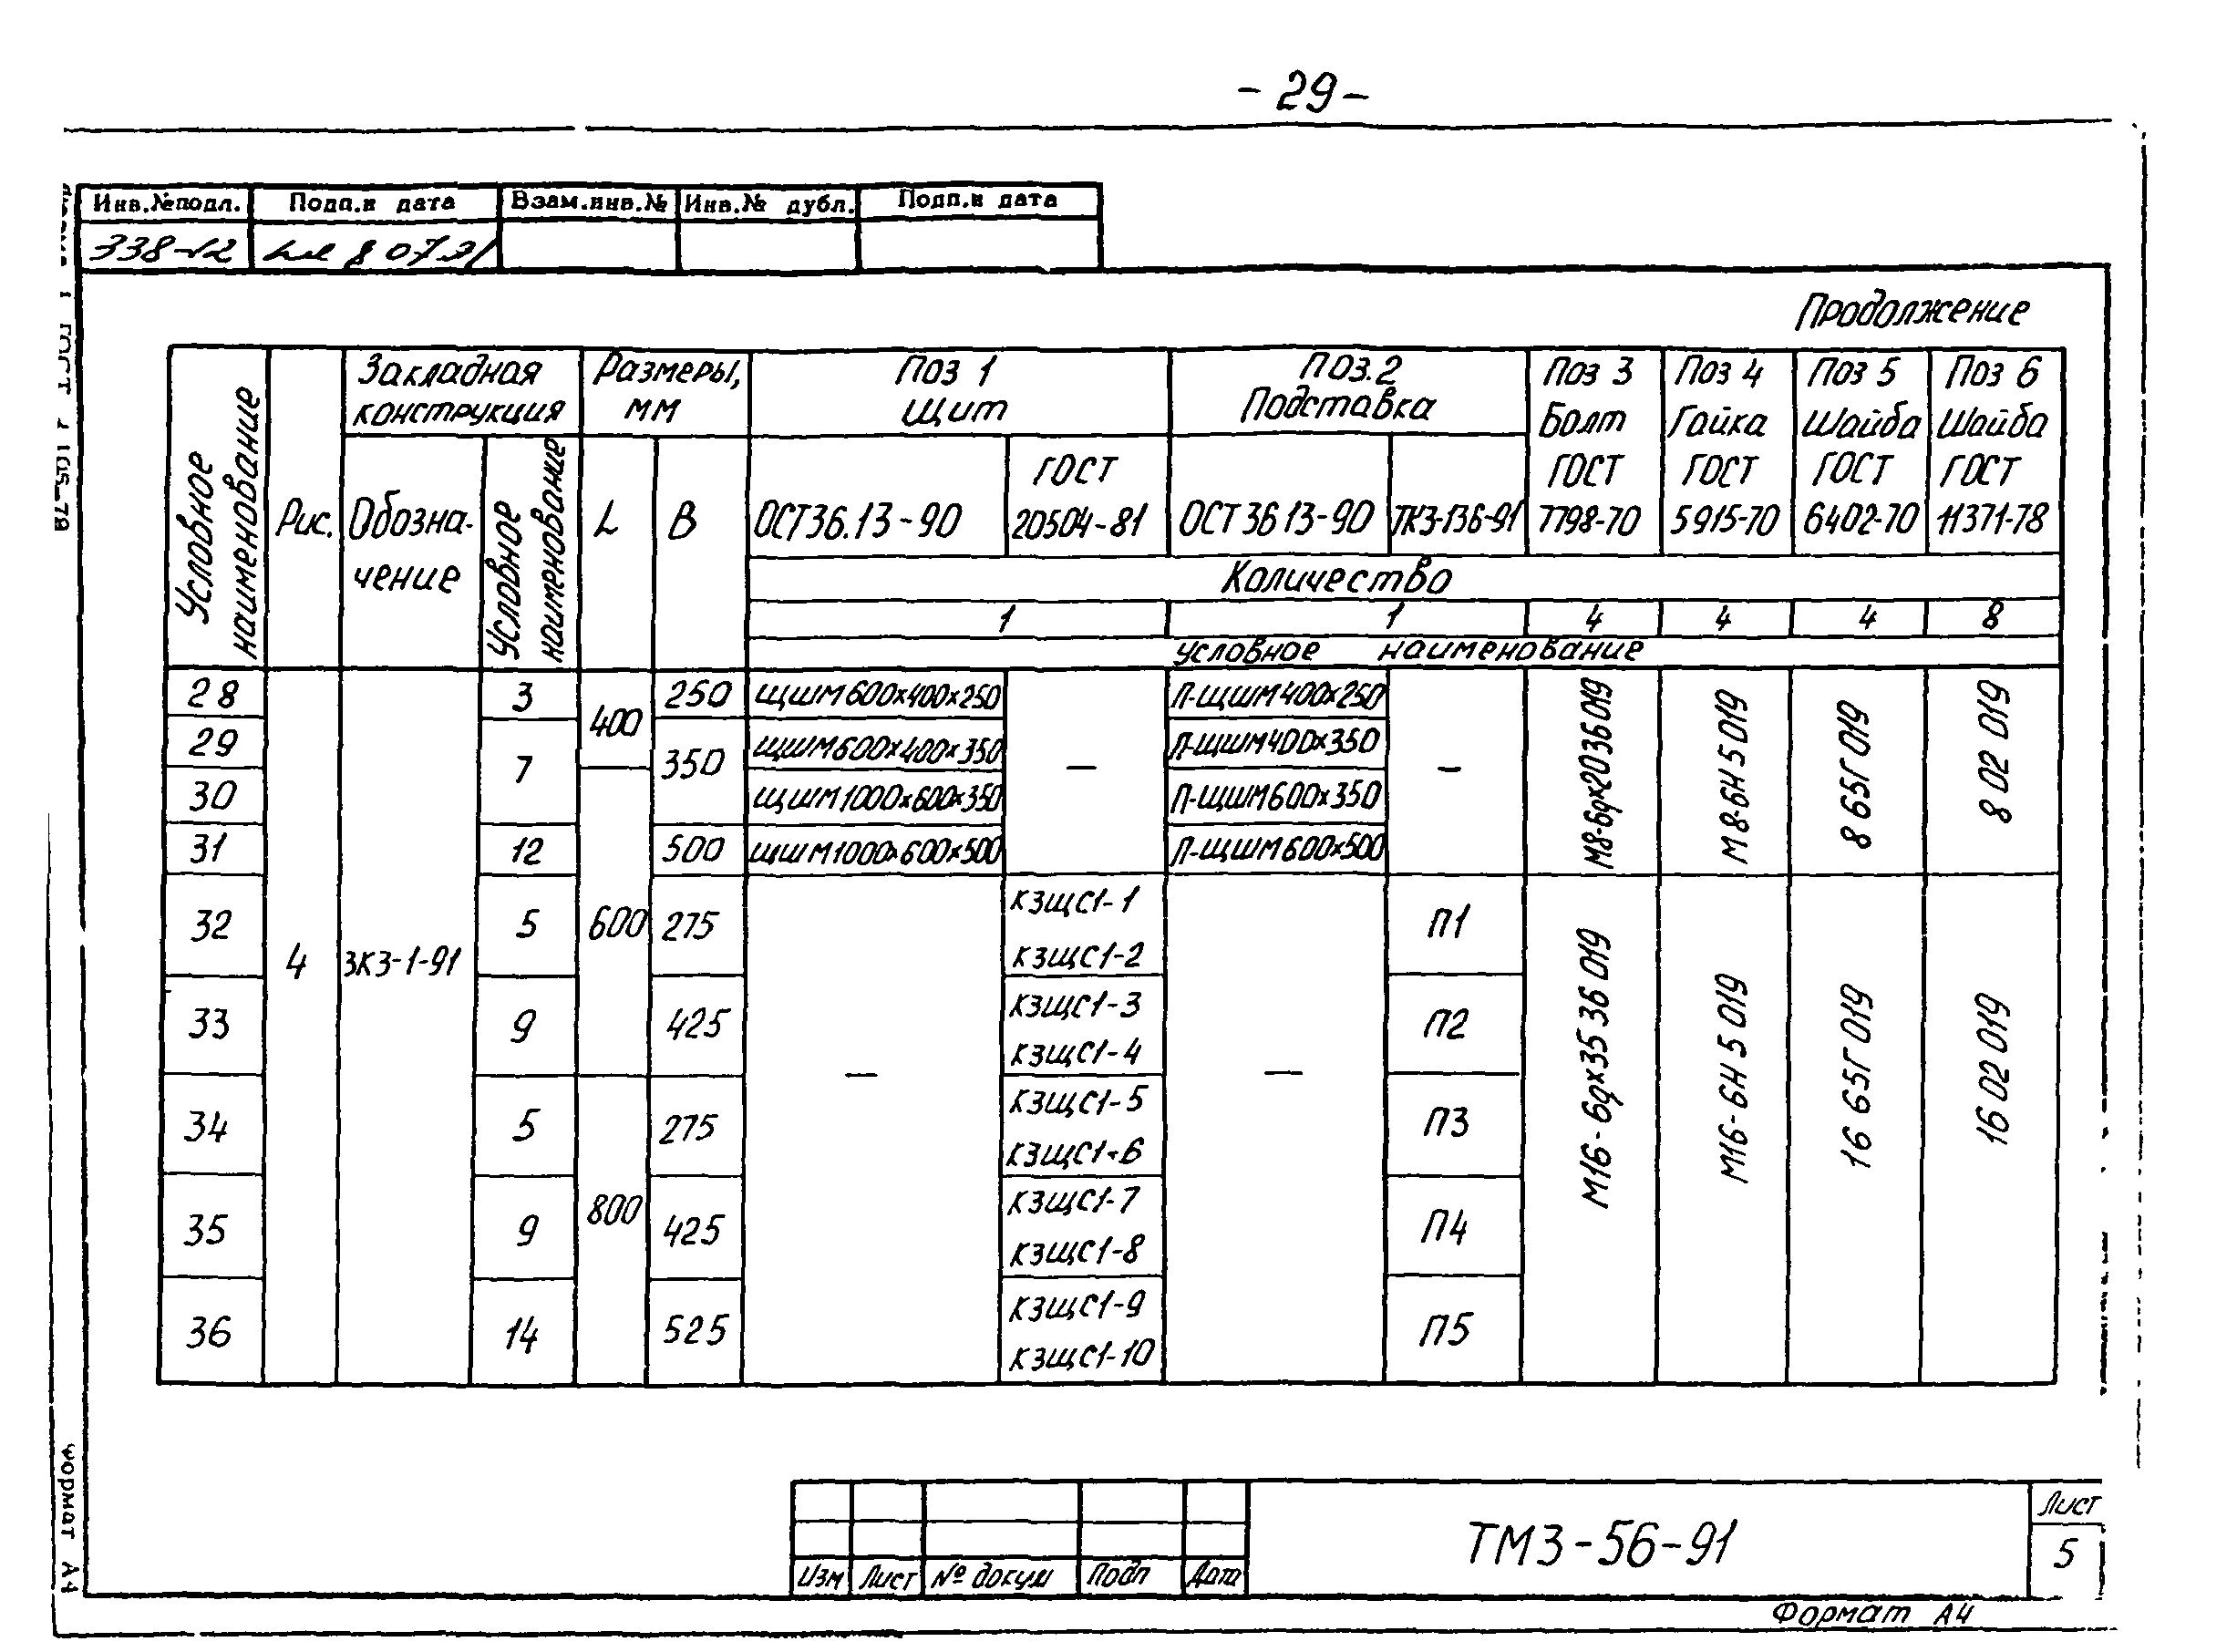 - 29 -
Инв.№подл. Подп.и дата Взам.инв.№ Инв.№ дубл. Подп.и дата
338-12 8 07.91
Продолжение
Условное наименование
Рис.
Закладная конструкция
Обозна-
чение
Условное наименование
Размеры,
мм
L B
Поз 1
Щит
ОСТ36.13-90
ГОСТ
20504-81
Поз.2
Подставка
ОСТ36 13-90
ТК3-136-91
Поз 3
Болт
ГОСТ
7798-70
Поз 4
Гайка
ГОСТ
5915-70
Поз 5
Шайба
ГОСТ
6402-70
Поз 6
Шайба
ГОСТ
11371-78
Количество
1 1 4 4 4 8
условное наименование
28 3 400 250 ЩШМ600х400х250 — П-ЩШМ400х250 —
29 7 350 ЩШМ600х400х350 П-ЩШМ400х350
30 ЩШМ1000х600х350 П-ЩШМ600х350
31 12 500 ЩШМ1000х600х500 П-ЩШМ600х500
М8-6gх20 36 019
М8-6Н 5 019
8 65Г 019
8 02 019
4 ЗК3-1-91
32 5 600 275 КЗЩС1-1 П1
КЗЩС1-2
33 9 425 КЗЩС1-3 П2
КЗЩС1-4
— —
34 5 275 КЗЩС1-5 П3
КЗЩС1-6
35 9 800 425 КЗЩС1-7 П4
КЗЩС1-8
36 14 525 КЗЩС1-9 П5
КЗЩС1-10
М16-6gх35 36 019
М16-6Н 5 019
16 65Г 019
16 02 019
Изм Лист № докум Подп Дата
ТМ3-56-91
Лист
5
Формат А4
формат А4